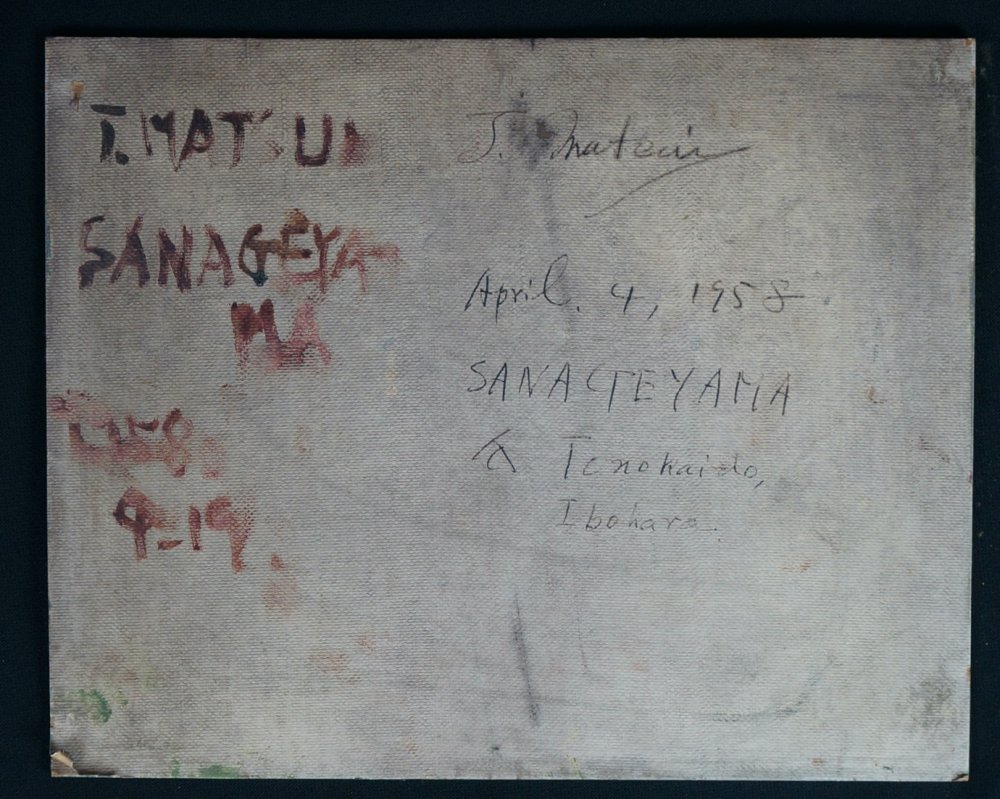 T. MATSUI
SANAGEYA
MA
1958.
4-19
T. Matsui
April. 4, 1958.
SANAGEYAMA
Tenokaido,
Ibohara.